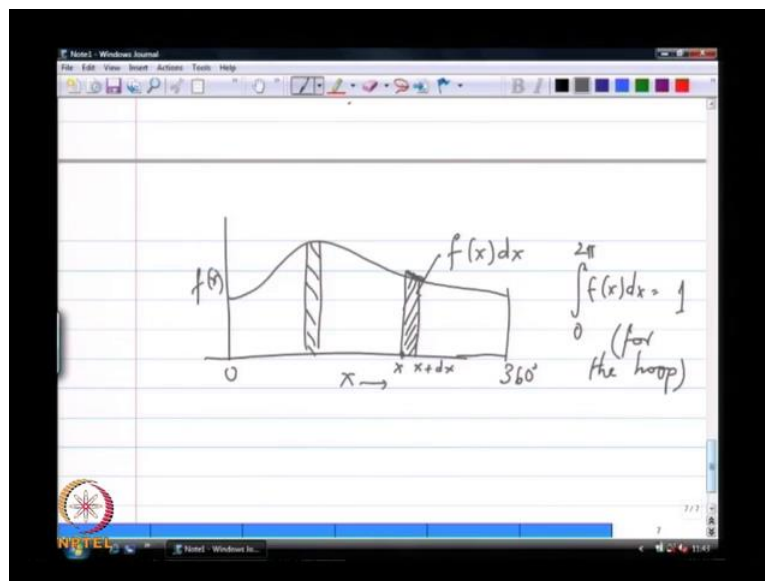 Note1 - Windows Journal
File Edit View Insert Actions Tools Help
B I
f(x)dx
f(x)
2π
∫ f(x)dx = 1
0
(for
the hoop)
0
x →
x x+dx
360°
7/7
7
NPTEL
Note1 - Windows Jo...
11:43